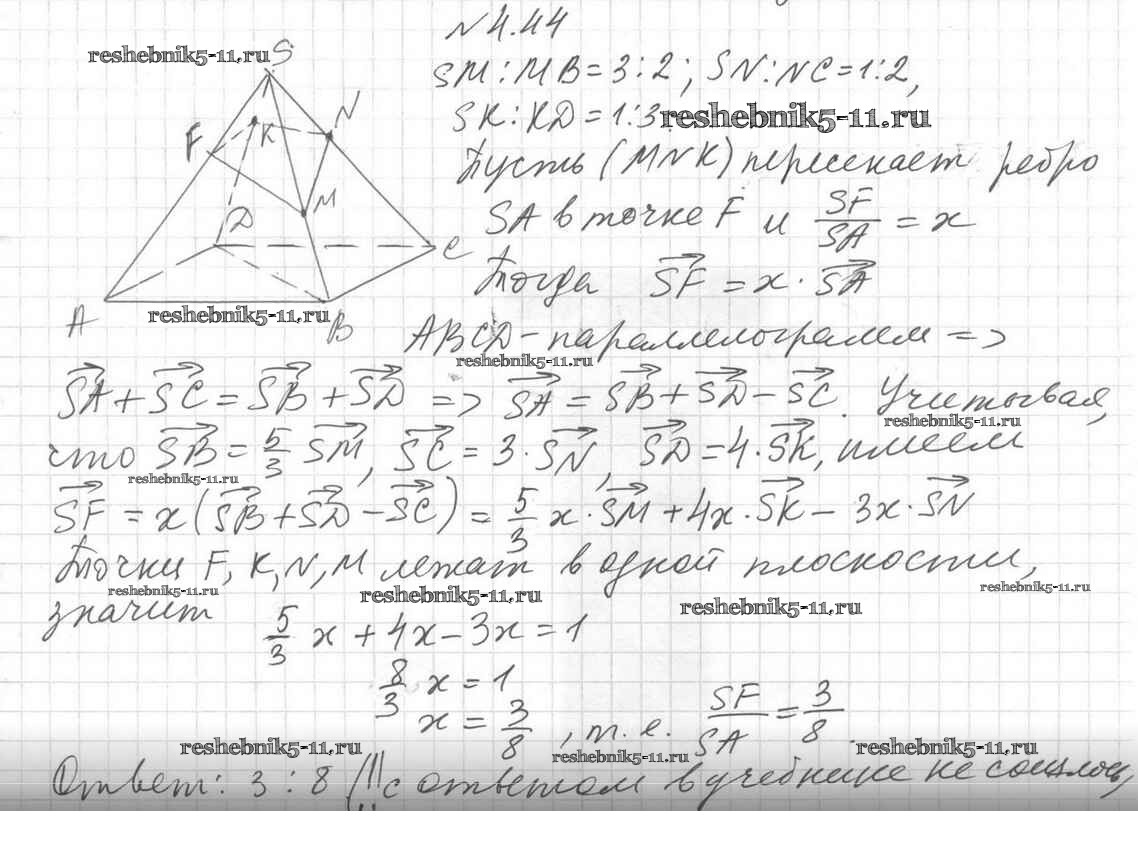 N 4.44
reshebnik5-11.ru S
SM : MB = 3 : 2 ; SN : NC = 1 : 2,
SK : KD = 1 : 3 reshebnik5-11.ru
F K N
Пусть (MNK) пересекает ребро
M
SA в точке F и SF/SA = x
D
C
Тогда SF→ = x · SA→
A reshebnik5-11.ru B
ABCD - параллелограмм =>
reshebnik5-11.ru
SA→ + SC→ = SB→ + SD→ => SA→ = SB→ + SD→ - SC→. Учитывая,
reshebnik5-11.ru
что SB→ = 5/3 SM→, SC→ = 3 · SN→, SD→ = 4 · SK→, имеем
reshebnik5-11.ru
SF→ = x (SB→ + SD→ - SC→) = 5/3 x · SM→ + 4x · SK→ - 3x · SN→
Точки F, K, N, M лежат в одной плоскости,
reshebnik5-11.ru reshebnik5-11.ru reshebnik5-11.ru reshebnik5-11.ru
значит
5/3 x + 4x - 3x = 1
8/3 x = 1
x = 3/8, т. е. SF/SA = 3/8
reshebnik5-11.ru reshebnik5-11.ru reshebnik5-11.ru
Ответ: 3 : 8 (!! с ответом в учебнике не сошлось,